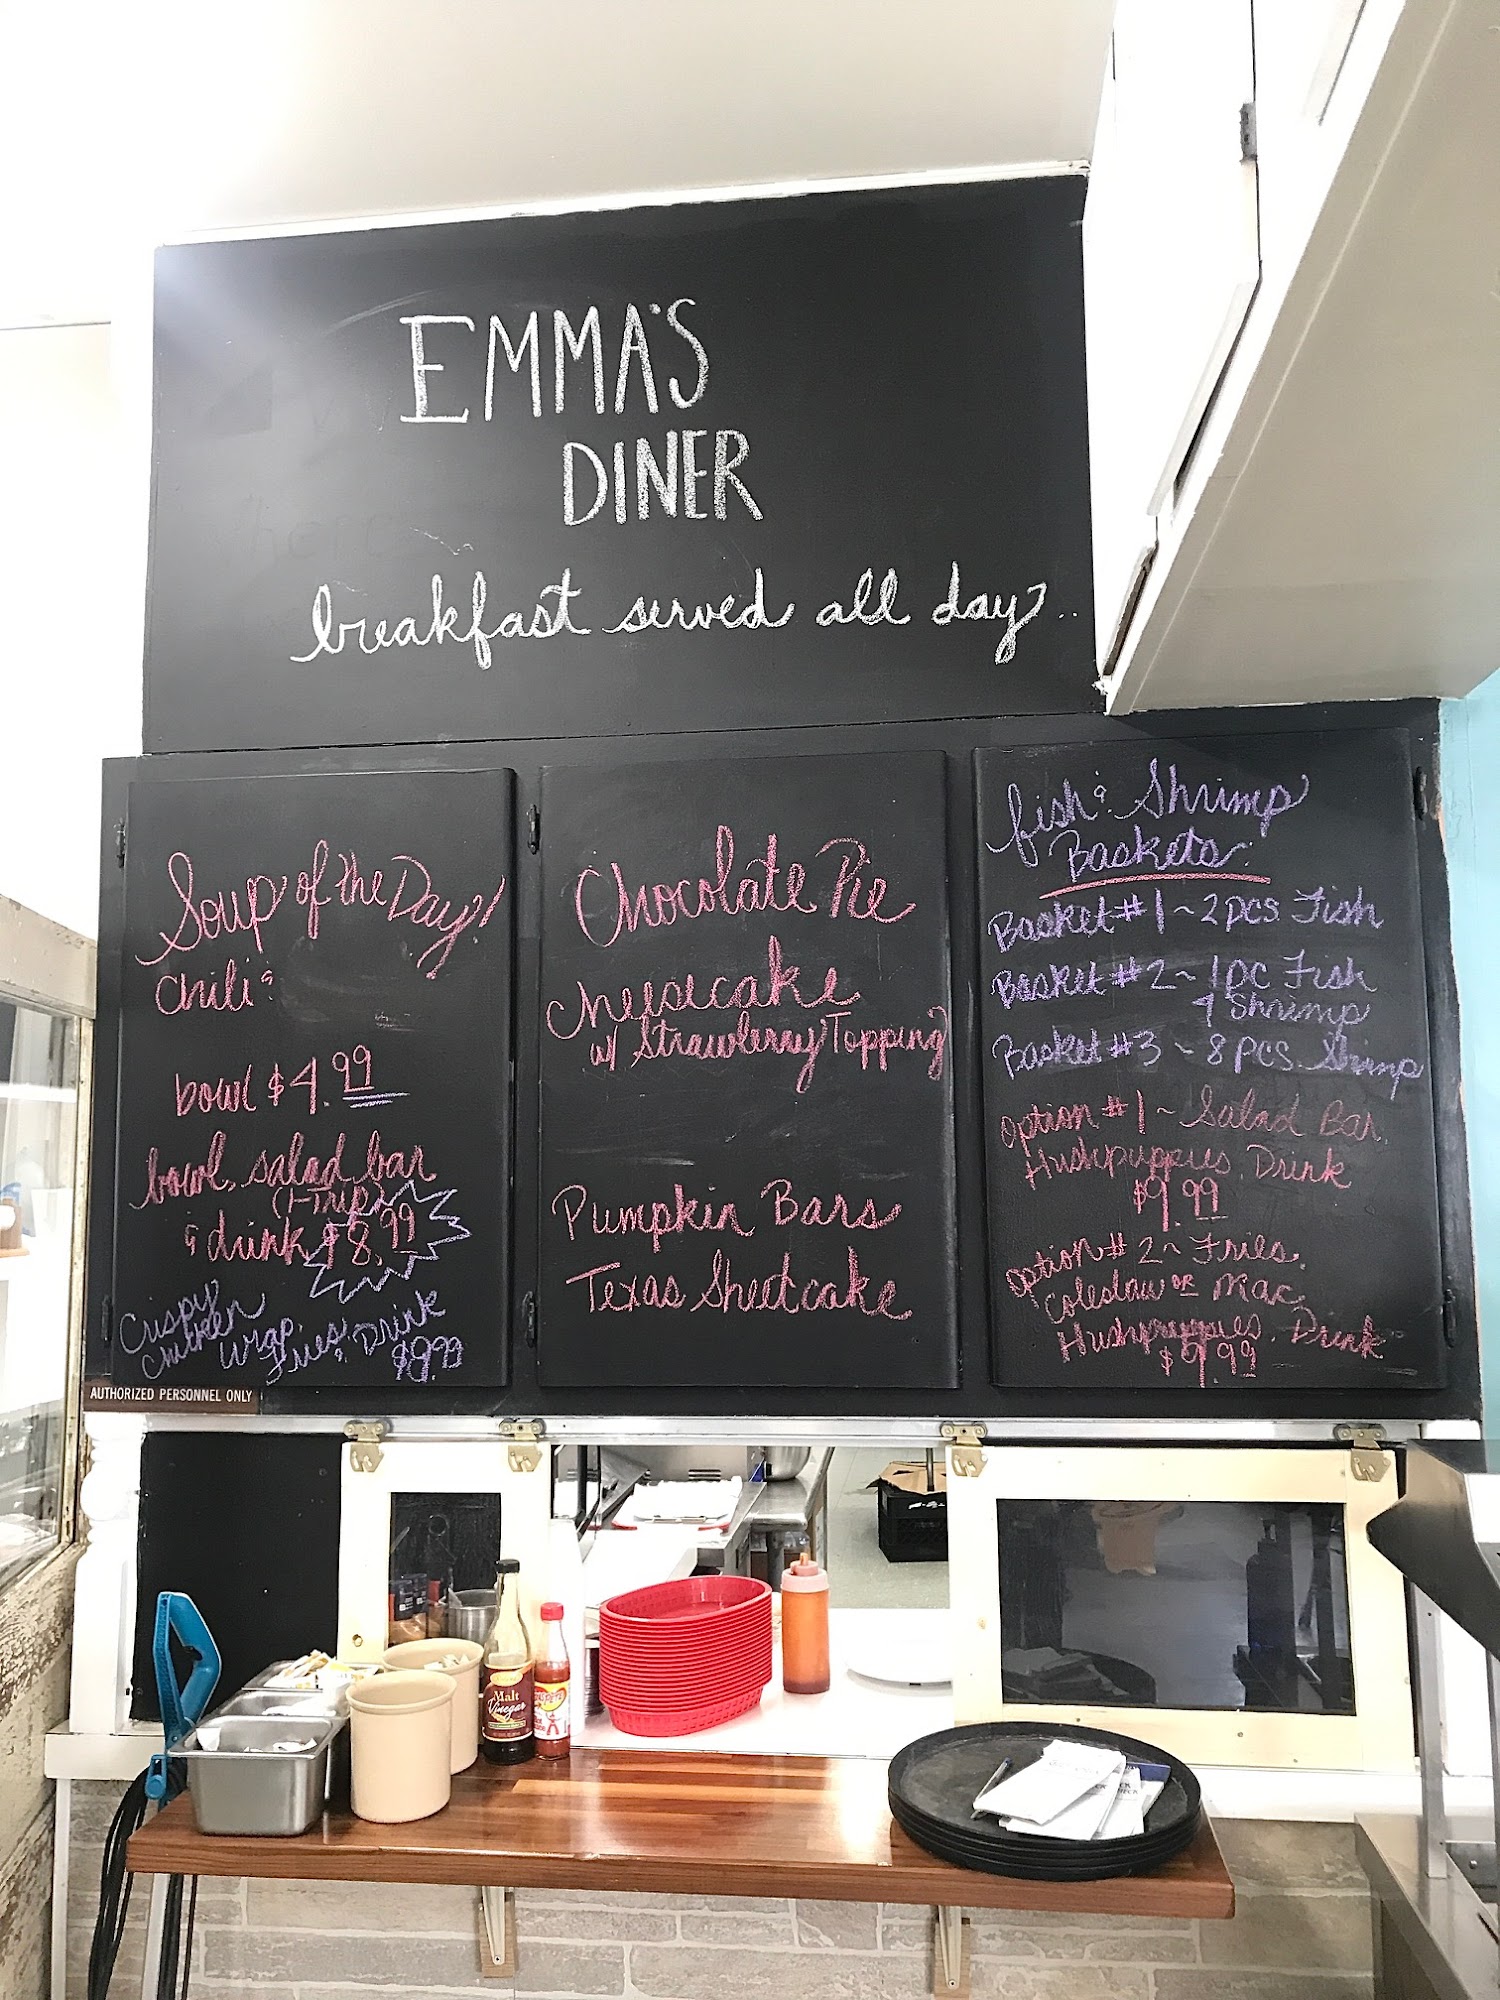 EMMA'S
DINER
breakfast served all day...
Soup of the Day!
Chili &
bowl $4.99
bowl, salad bar
(1-Trip)
& drink $8.99
Crispy
Chicken Wrap,
Fries & Drink
$9.99
Chocolate Pie
Cheesecake
w/ Strawberry Topping
Pumpkin Bars
Texas Sheetcake
fish & Shrimp
Baskets:
Basket #1 ~ 2 pcs Fish
Basket #2 ~ 1 pc Fish
4 Shrimp
Basket #3 ~ 8 pcs. Shrimp
Option #1 ~ Salad Bar,
Hushpuppies, Drink
$9.99
Option #2 ~ Fries,
Coleslaw or Mac,
Hushpuppies, Drink
$9.99
AUTHORIZED PERSONNEL ONLY
Malt
Vinegar